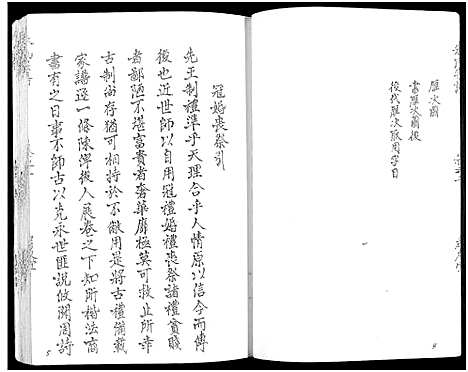 歷次層
當歷次層後
後代歷次取用字目
8
冠婚喪祭引
先王制禮準乎天理合乎人情原以信今而傳
後也近世師以自用冠禮婚禮喪祭諸禮貧賤
者鄙陋不湛富貴者奢華靡極莫可救止所幸
古制尚存猶可相持於不敝用是將古禮備載
家譜逐一條陳俾後人展卷之下知所楷法商
書有之曰事不師古以克永世匪說攸聞周詩
5